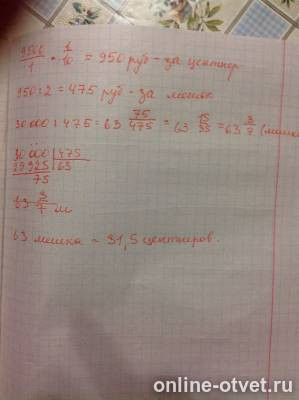 9500/1 · 1/10 = 950 руб - за центнер
950:2 = 475 руб - за мешок
30 000 : 475 = 63 75/475 = 63 15/95 = 63 3/7 (меш
30 000 | 475
29925 | 63
75
63 3/7 м
63 мешка = 31,5 центнеров.
online-otvet.ru